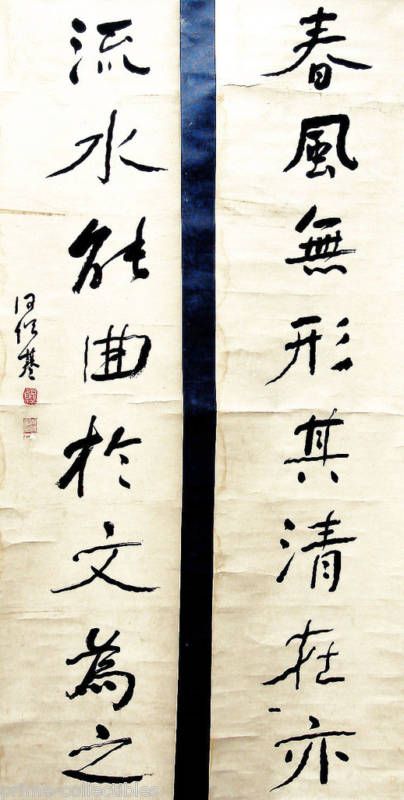 春風無形其清在亦
流水能曲於文為之
何紹基
prime-collectibles